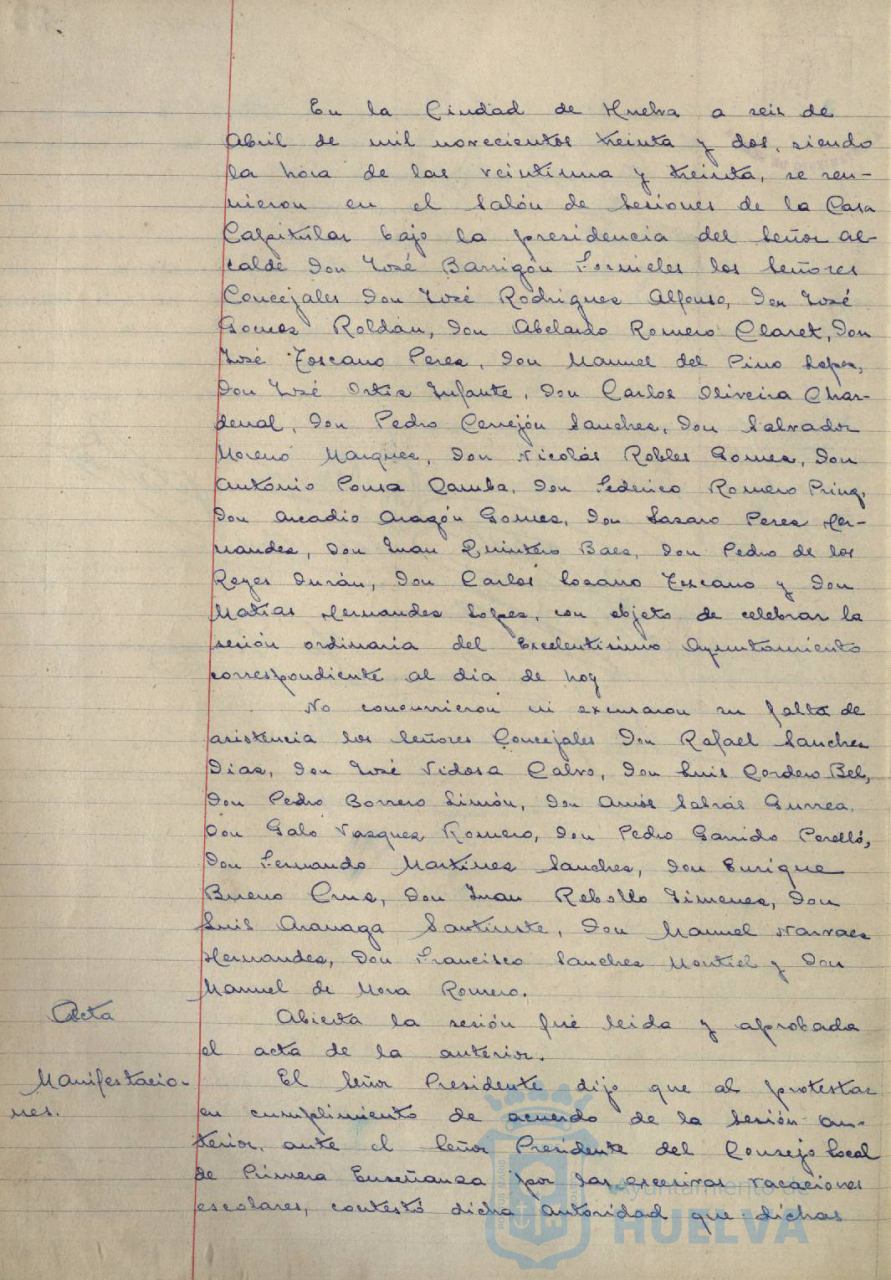 En la Ciudad de Huelva a seis de
Abril de mil novecientos treinta y dos, siendo
la hora de las veintiuna y treinta, se reu-
nieron en el Salón de Sesiones de la Casa
Capitular bajo la presidencia del Señor Al-
calde Don José Barrigón Fornieles los Señores
Concejales Don José Rodrigues Alfonso, Don José
Gomes Roldán, Don Abelardo Romero Claret, Don
José Toscano Peres, Don Manuel del Pino Lopes,
Don José Ortis Infante, Don Carlos Oliveira Char-
denal, Don Pedro Cerrejón Sanches, Don Salvador
Moreno Marques, Don Nicolás Robles Gomes, Don
Antonio Ponsa Camba, Don Federico Romero Prinq,
Don Arcadio Aragón Gomes, Don Lasaro Peres Her-
nandes, Don Juan Quintero Baes, Don Pedro de los
Reyes Durán, Don Carlos Losano Toscano y Don
Matías Hernandes Lopes, con objeto de celebrar la
sesión ordinaria del Excelentisimo Ayuntamiento
correspondiente al dia de hoy
No concurrieron ni excusaron su falta de
asistencia los Señores Concejales Don Rafael Sanches
Dias, Don José Vidosa Calvo, Don Luis Cordero Bel,
Don Pedro Borrero Limón, Don Amós Sabrás Gurrea.
Don Galo Vasques Romero, Don Pedro Garrido Perelló,
Don Fernando Martines Sanches, Don Enrique
Bueno Crus, Don Juan Rebollo Jimenes, Don
Luis Aranaga Santiuste, Don Manuel Narvaes
Hernandes, Don Francisco Sanches Montiel y Don
Manuel de Mora Romero.
Acta
Abierta la sesión fué leida y aprobada
el acta de la anterior.
Manifestacio-
nes.
El Señor Presidente dijo que al protestar
en cumplimiento de acuerdo de la Sesión an-
terior, ante el Señor Presidente del Consejo Local
de Primera Enseñanza por las excesivas vacaciones
escolares, contestó dicha autoridad que dichas
Ayuntamiento de
HUELVA